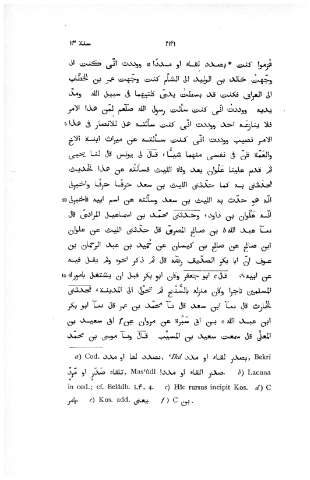 سنة ١٣ ٢١٤١
قوموا كنت بصدد لقاء او مددا وودت انى كنت اذ
وجهت خالد بن الوليد الى الشأم كنت وجهت عمر بن الخطاب
الى العراق فكنت قد بسطت يدى كلتيهما فى سبيل الله ومد
يديه ووددت انى كنت سألت رسول الله صلعم لمن هذا الامر
فلا ينازعه احد ووددت انى كنت سألته هل للانصار فى هذا
الامر نصيب ووددت انى كنت سألته عن ميراث ابنة الاخ
والعمة فان فى نفسى منهما شيئا، قال لى يونس قال لنا يحيى
ثم قدم علينا علوان بعد وفاة الليث فسألته عن هذا الحديث
فحدثنى به كما حدثنى الليث بن سعد حرفا حرفا واخبرنى
انه هو حدث به الليث بن سعد وسألته عن اسم ابيه فاخبرنى ١٠
انه علوان بن داود، وحدثنى محمد بن اسماعيل المرادى قال
نا عبد الله بن صالح المصرى قال حدثنى الليث عن علوان
ابن صالح عن صالح بن كيسان عن حميد بن عبد الرحمان بن
عوف ان ابا بكر الصديق رضه قال ثم ذكر نحوه ولم يقل فيه
عن ابيه، قال ابو جعفر وكان ابو بكر قبل ان يشتغل بامور ١٥
المسلمين تاجرا وكان منزله بالسنح ثم تحول الى المدينة، فحدثنى
الحارث قال نا ابن سعد قال نا محمد بن عمر قال نا ابو بكر
ابن عبد الله بن ابى سبرة عن مروان عن ابى سعيد بن
المعلى قال سمعت سعيد بن المسيب قال ونا موسى بن محمد
a) Cod. بصدد لقا او مدد, Ibid. بصدر لقاء او مدد, Bekri
صدر القاء او مددا, Mas'ûdi تلقاء صدر او مرد b) Lacuna
in cod.; cf. Belâdh. ١.٣, 4. c) Hic rursus incipit Kos. d) C
e) Kos. add. يعنى f) C بن.